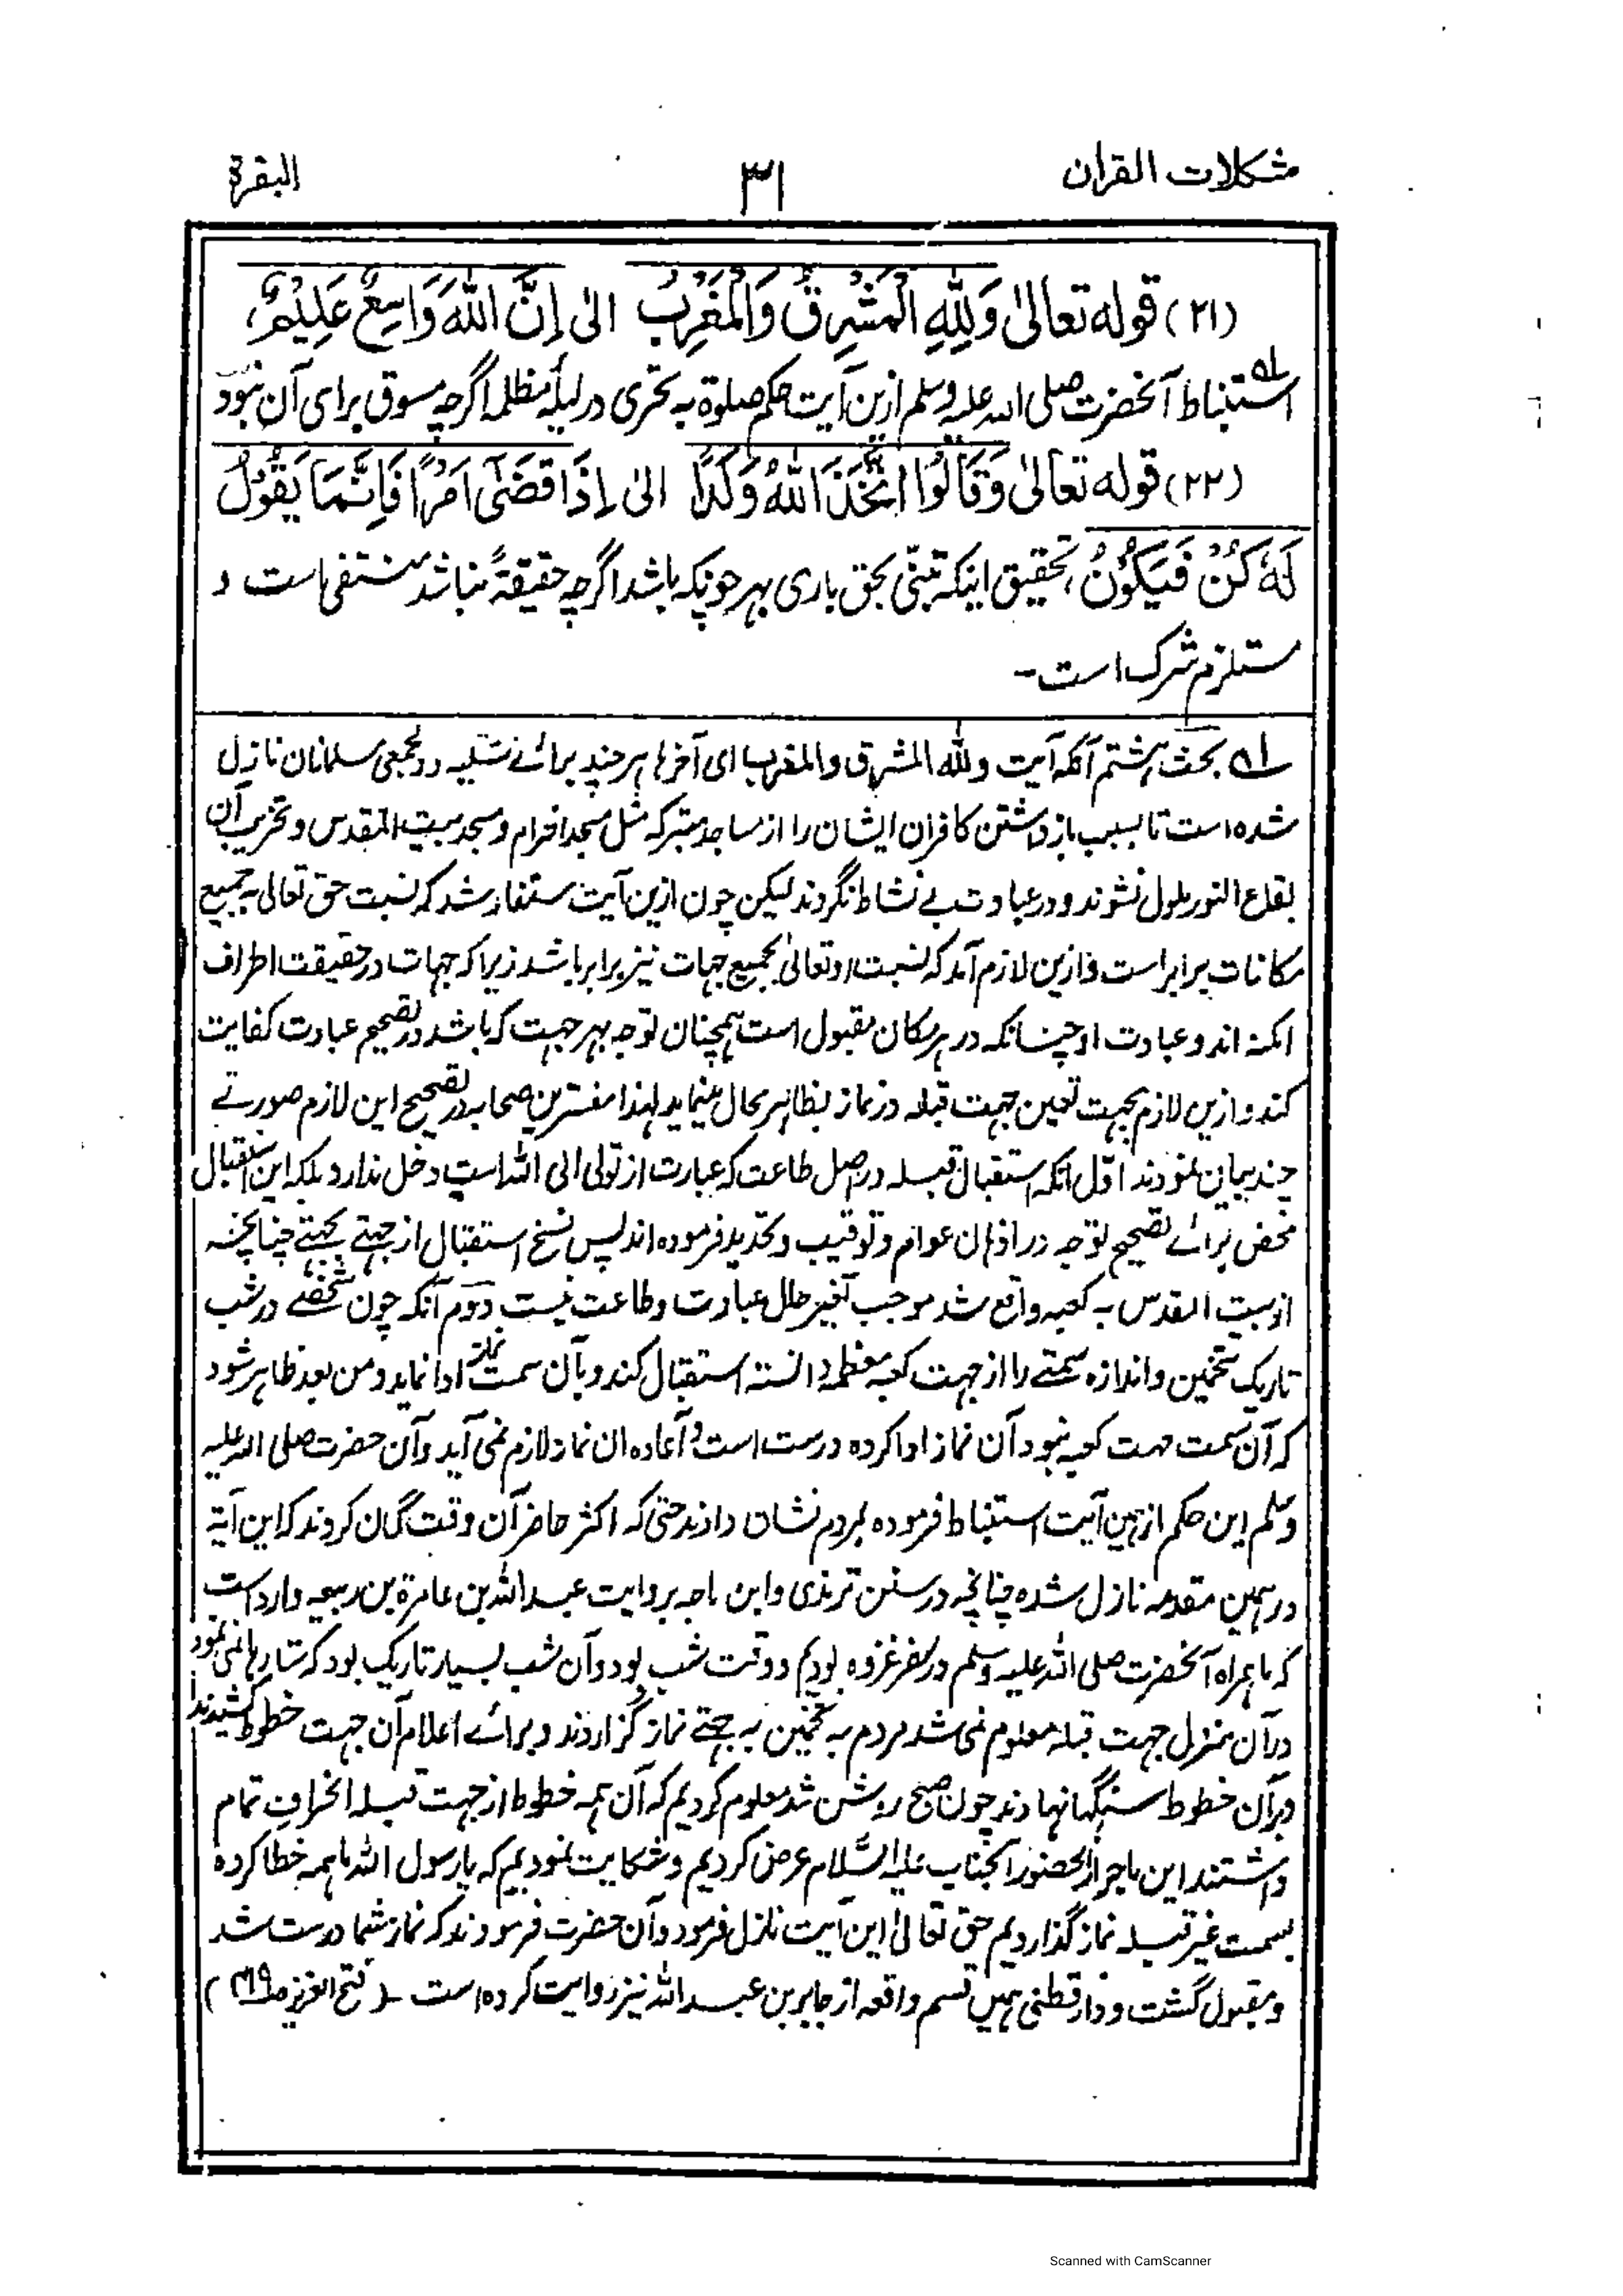 مشکلات القران
۳۱
البقرة
(۲۱) قوله تعالیٰ وَلِلّٰهِ الْمَشْرِقُ وَالْمَغْرِبُ الیٰ اِنَّ اللّٰهَ وَاسِعٌ عَلِیْمٌ،
استنباط آنحضرت صلی الله علیه وسلم ازین آیت حکم صلوة به تحری در لیلۂ مظلمه اگرچه مسوق برای آن نبود
(۲۲) قوله تعالیٰ وَقَالُوا اتَّخَذَ اللّٰهُ وَلَدًا الیٰ اِذَا قَضٰۤی اَمْرًا فَاِنَّمَا یَقُوْلُ
لَهٗ کُنْ فَیَکُوْنُ، تحقیق اینکه تبنّی بحق باری بهر چونکه باشد اگرچه حقیقةً نباشد منتفی است و
مستلزم شرک است-
۱ه بحث هشتم آنکه آیت ولله المشرق والمغرب الی آخرها هر چند برائے تسلیه و دلجمعی مسلمانان نازل
شده است تا بسبب باز داشتن کافران ایشان را از مساجد متبرکه مثل مسجد الحرام و مسجد بیت المقدس و تخریب آن
بقاع النور ملول نشوند و در عبادت بے نشاط نگردند لیکن چون ازین آیت مستفاد شد که نسبت حق تعالی به جمیع
مکانات برابر است و ازین لازم آمد که نسبت او تعالیٰ بجمیع جهات نیز برابر باشد زیرا که جهات در حقیقت اطراف
امکنه اند و عبادت او چنانکه در هر مکان مقبول است همچنان توجه بهر جهت که باشد در تصحیح عبادت کفایت
کند و ازین لازم بجهت تعین جهت قبله در نماز بظاهر محال مینماید لهذا مفسرین صحابه در تصحیح این لازم صورتے
چند بیان نمودند اوّل آنکه استقبال قبله در اصل طاعت که عبارت از تولی الی الله است دخل ندارد بلکه این استقبال
محض برائے تصحیح توجه در اذهان عوام و توقیت و تحدید فرموده اند پس نسخ استقبال از جهتے بجهتے چنانچه
از بیت المقدس به کعبه واقع شد موجب تغیر حال عبادت و طاعت نیست دوم آنکه چون شخصے در شب
تاریک بتخمین و اندازه سمتے را از جهت کعبه معظمه دانسته استقبال کند و بآن سمت نماز ادا نماید و من بعد ظاهر شود
که آن سمت جهت کعبه نبود آن نماز ادا کرده درست است و اعاده ان نماز لازم نمی آید و آن حضرت صلی الله علیه
وسلم این حکم از همین آیت استنباط فرموده بمردم نشان دادند حتی که اکثر حاضر آن وقت گمان کردند که این آیة
در همین مقدمه نازل شده چنانچه در سنن ترمذی و ابن ماجه بروایت عبد الله بن عامرة بن ربیعه وارد است
که ما همراه آنحضرت صلی الله علیه وسلم در سفر غزوه بودیم و وقت شب بود و آن شب بسیار تاریک بود که ستارها نمی نمود
در آن منزل جهت قبله معلوم نمی شد مردم به تخمین به جهتے نماز گزاردند و برائے اعلام آن جهت خطوط کشیدند
و بر آن خطوط سنگها نهادند چون صبح روشن شد معلوم کردیم که آن همه خطوط از جهت قبله انحراف تمام
داشتند این ماجرا بحضور آنجناب علیه السّلام عرض کردیم و شکایت نمودیم که یا رسول الله ما همه خطا کرده
بسمت غیر قبله نماز گذاردیم حق تعالیٰ این آیت نازل فرمود و آن حضرت فرمودند که نماز شما درست شد
و مقبول گشت و دارقطنی همین قسم واقعه از جابر بن عبد الله نیز روایت کرده است - (فتح العزیز
Scanned with CamScanner